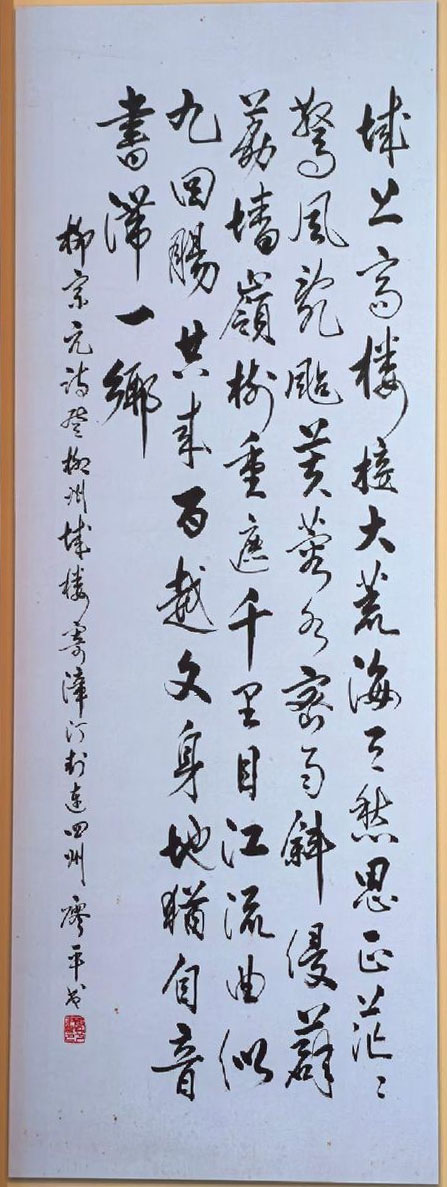 城上高楼接大荒海天愁思正茫々
驚風亂颭芙蓉水密雨斜侵薜
荔墻嶺樹重遮千里目江流曲似
九回腸共来百越文身地猶自音
書滞一鄉
柳宗元詩登柳州城楼寄漳汀封連四州 廖平书